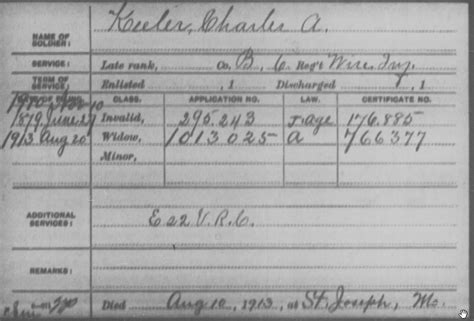 NAME OF SOLDIER: Keeler, Charles A.
SERVICE: Late rank, Co. B, 6 Reg't Wisc. Inf.
TERM OF SERVICE: Enlisted , 1 Discharged , 1
CLASS. APPLICATION NO. LAW. CERTIFICATE NO.
1879 June 27 Invalid, 295.243 176.885
1913 Aug 20 Widow, 1013025 A 766377
Minor,
ADDITIONAL SERVICES: E 22 V.R.C.
REMARKS:
Died Aug 10, 1913, at St. Joseph, Mo.